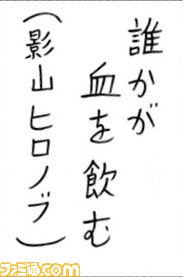 誰かが
血を飲む
(影山ヒロノブ)
ファミ通.com